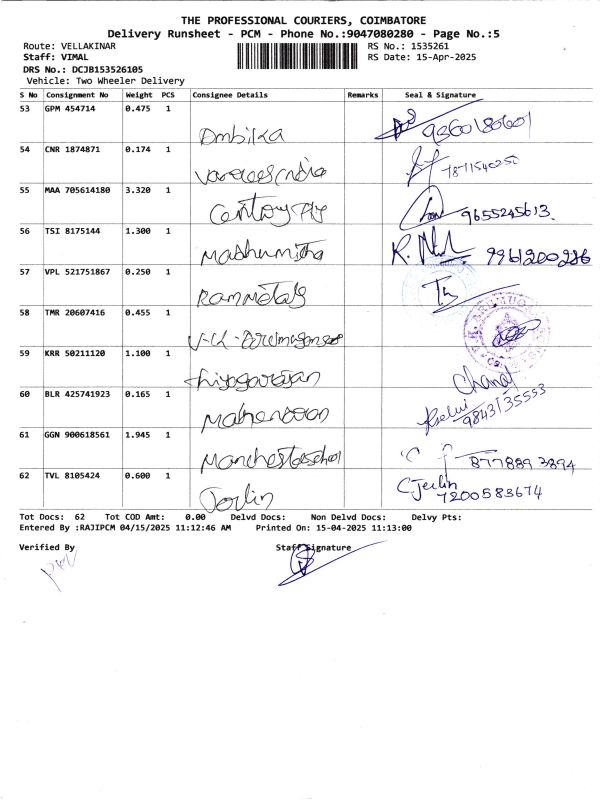 THE PROFESSIONAL COURIERS, COIMBATORE
Delivery Runsheet - PCM - Phone No.:9047080280 - Page No.:5
Route: VELLAKINAR
RS No.: 1535261
Staff: VIMAL
RS Date: 15-Apr-2025
DRS No.: DCJB153526105
Vehicle: Two Wheeler Delivery
S No Consignment No Weight PCS Consignee Details Remarks Seal & Signature
53 GPM 454714 0.475 1
Ambika
54 CNR 1874871 0.174 1
55 MAA 705614180 3.320 1
Century Ply 9655245613.
56 TSI 8175144 1.300 1
Madhumitha
57 VPL 521751867 0.250 1
Ram metals
58 TMR 20607416 0.455 1
59 KRR 50211120 1.100 1
thiyagarajan
60 BLR 425741923 0.165 1
9843135553
61 GGN 900618561 1.945 1
62 TVL 8105424 0.600 1
Jerlin C Jerlin
7200583674
Tot Docs: 62 Tot COD Amt: 0.00 Delvd Docs: Non Delvd Docs: Delvy Pts:
Entered By :RAJIPCM 04/15/2025 11:12:46 AM Printed On: 15-04-2025 11:13:00
Verified By Staff Signature